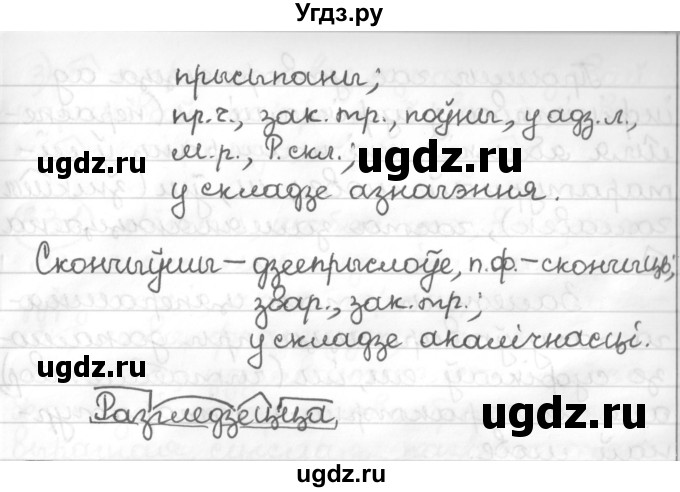 Угдз.ру
прысыпаны;
пр.ч., зак.тр., поўны, у адз.л.,
м.р., Р.скл.;
у складзе азначэння.
Скончыўшы – дзеепрыслоўе, п.ф. – скончыць;
звар., зак.тр.;
у складзе акалічнасці.
Разгледзецца
ugdz.ru
ugdz.ru
ugdz.ru
ugdz.ru
ugdz.ru
ugdz.ru
ugdz.ru